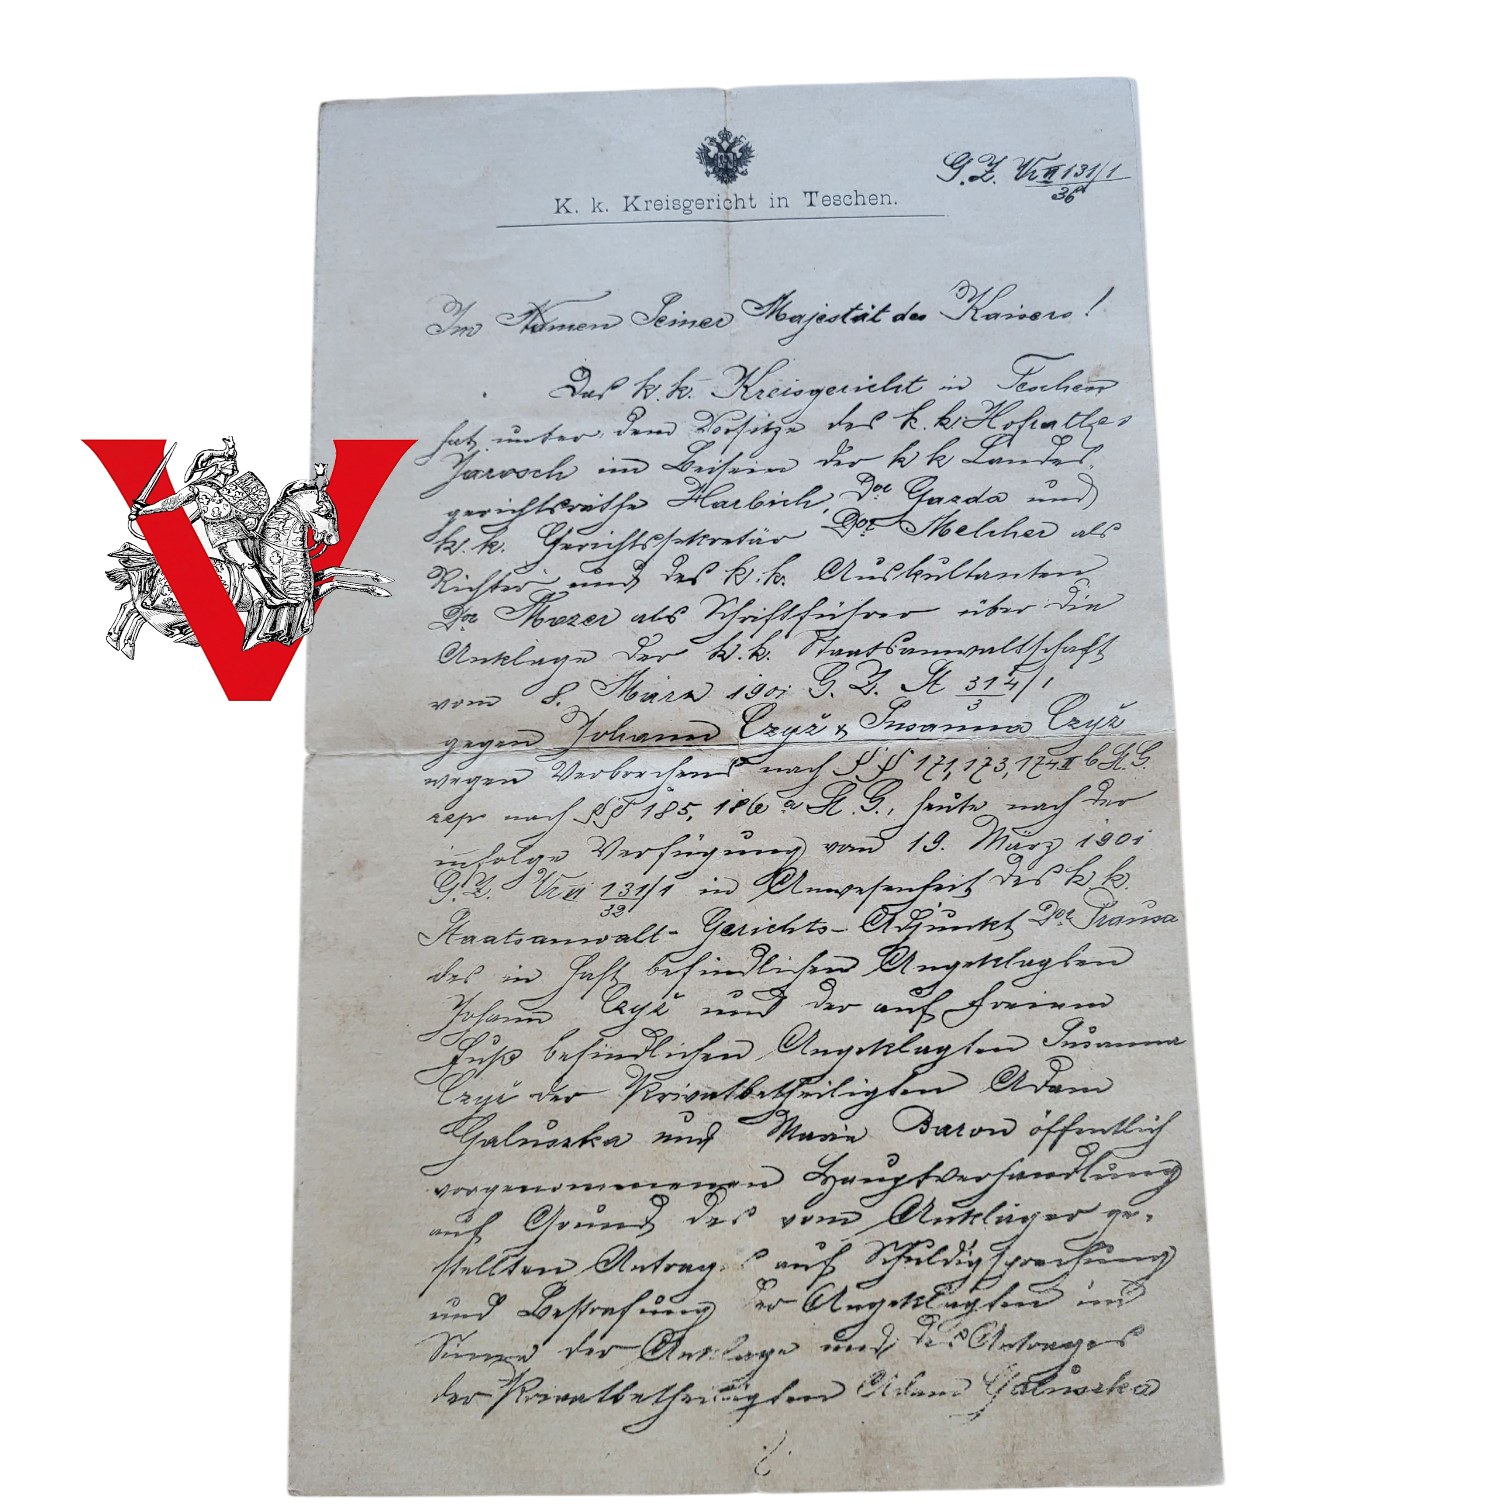 G. Z. Vr III 131/1
36
K. k. Kreisgericht in Teschen.
Im Namen Seiner Majestät des Kaisers!
Das k. k. Kreisgericht in Teschen
hat unter dem Vorsitze des k. k. Hofrathes
Jarosch im Beisein der k k Landes-
gerichtsräthe Harbich, Dor Gazda und
k. k. Gerichtssekretär Dor Melcher als
Richter und des k. k. Auskultanten
Dor Mozer als Schriftführer über die
Anklage der k. k. Staatsanwaltschaft
vom 8. März 1901 G. Z. St 314/1
3
gegen Johann Czyž & Susanna Czyž
wegen Verbrechens nach §§ 171, 173, 174 II b St. G.
resp nach §§ 185, 186 a St. G., heute nach der
infolge Verfügung vom 19. März 1901
G. Z. Vr III 131/1 in Anwesenheit des k. k.
32
Staatsanwalt- Gerichts- Adjunkt Dor Prausa
des in Haft befindlichen Angeklagten
Johann Czyž und der auf freiem
Fuß befindlichen Angeklagten Susanna
Czyž der Privatbetheiligten Adam
Galuszka und Marie Baron öffentlich
vorgenommenen Hauptverhandlung
auf Grund des vom Ankläger ge-
stellten Antrages auf Schuldigsprechung
und Bestrafung der Angeklagten im
Sinne der Anklage und des Antrages
der Privatbetheiligten Adam Galuszka
V